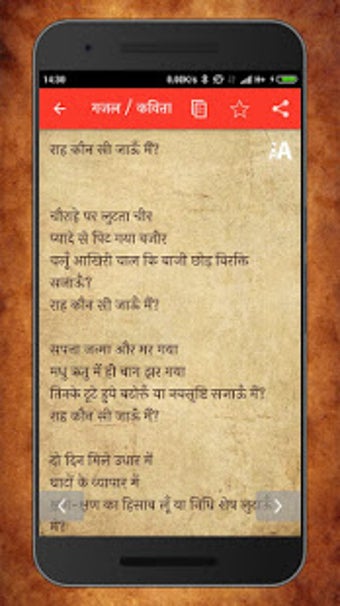 14:30 0.00K/s H+
गजल / कविता
राह कौन सी जाऊँ मैं?
A
चौराहे पर लुटता चीर
प्यादे से पिट गया वजीर
चलूँ आखिरी चाल कि बाजी छोड़ विरक्ति
सजाऊँ?
राह कौन सी जाऊँ मैं?
सपना जन्मा और मर गया
मधु ऋतु में ही बाग झर गया
तिनके टूटे हुये बटोरूँ या नवसृष्टि सजाऊँ मैं?
राह कौन सी जाऊँ मैं?
दो दिन मिले उधार में
घाटों के व्यापार में
क्षण-क्षण का हिसाब लूँ या निधि शेष लुटाऊँ
मैं?